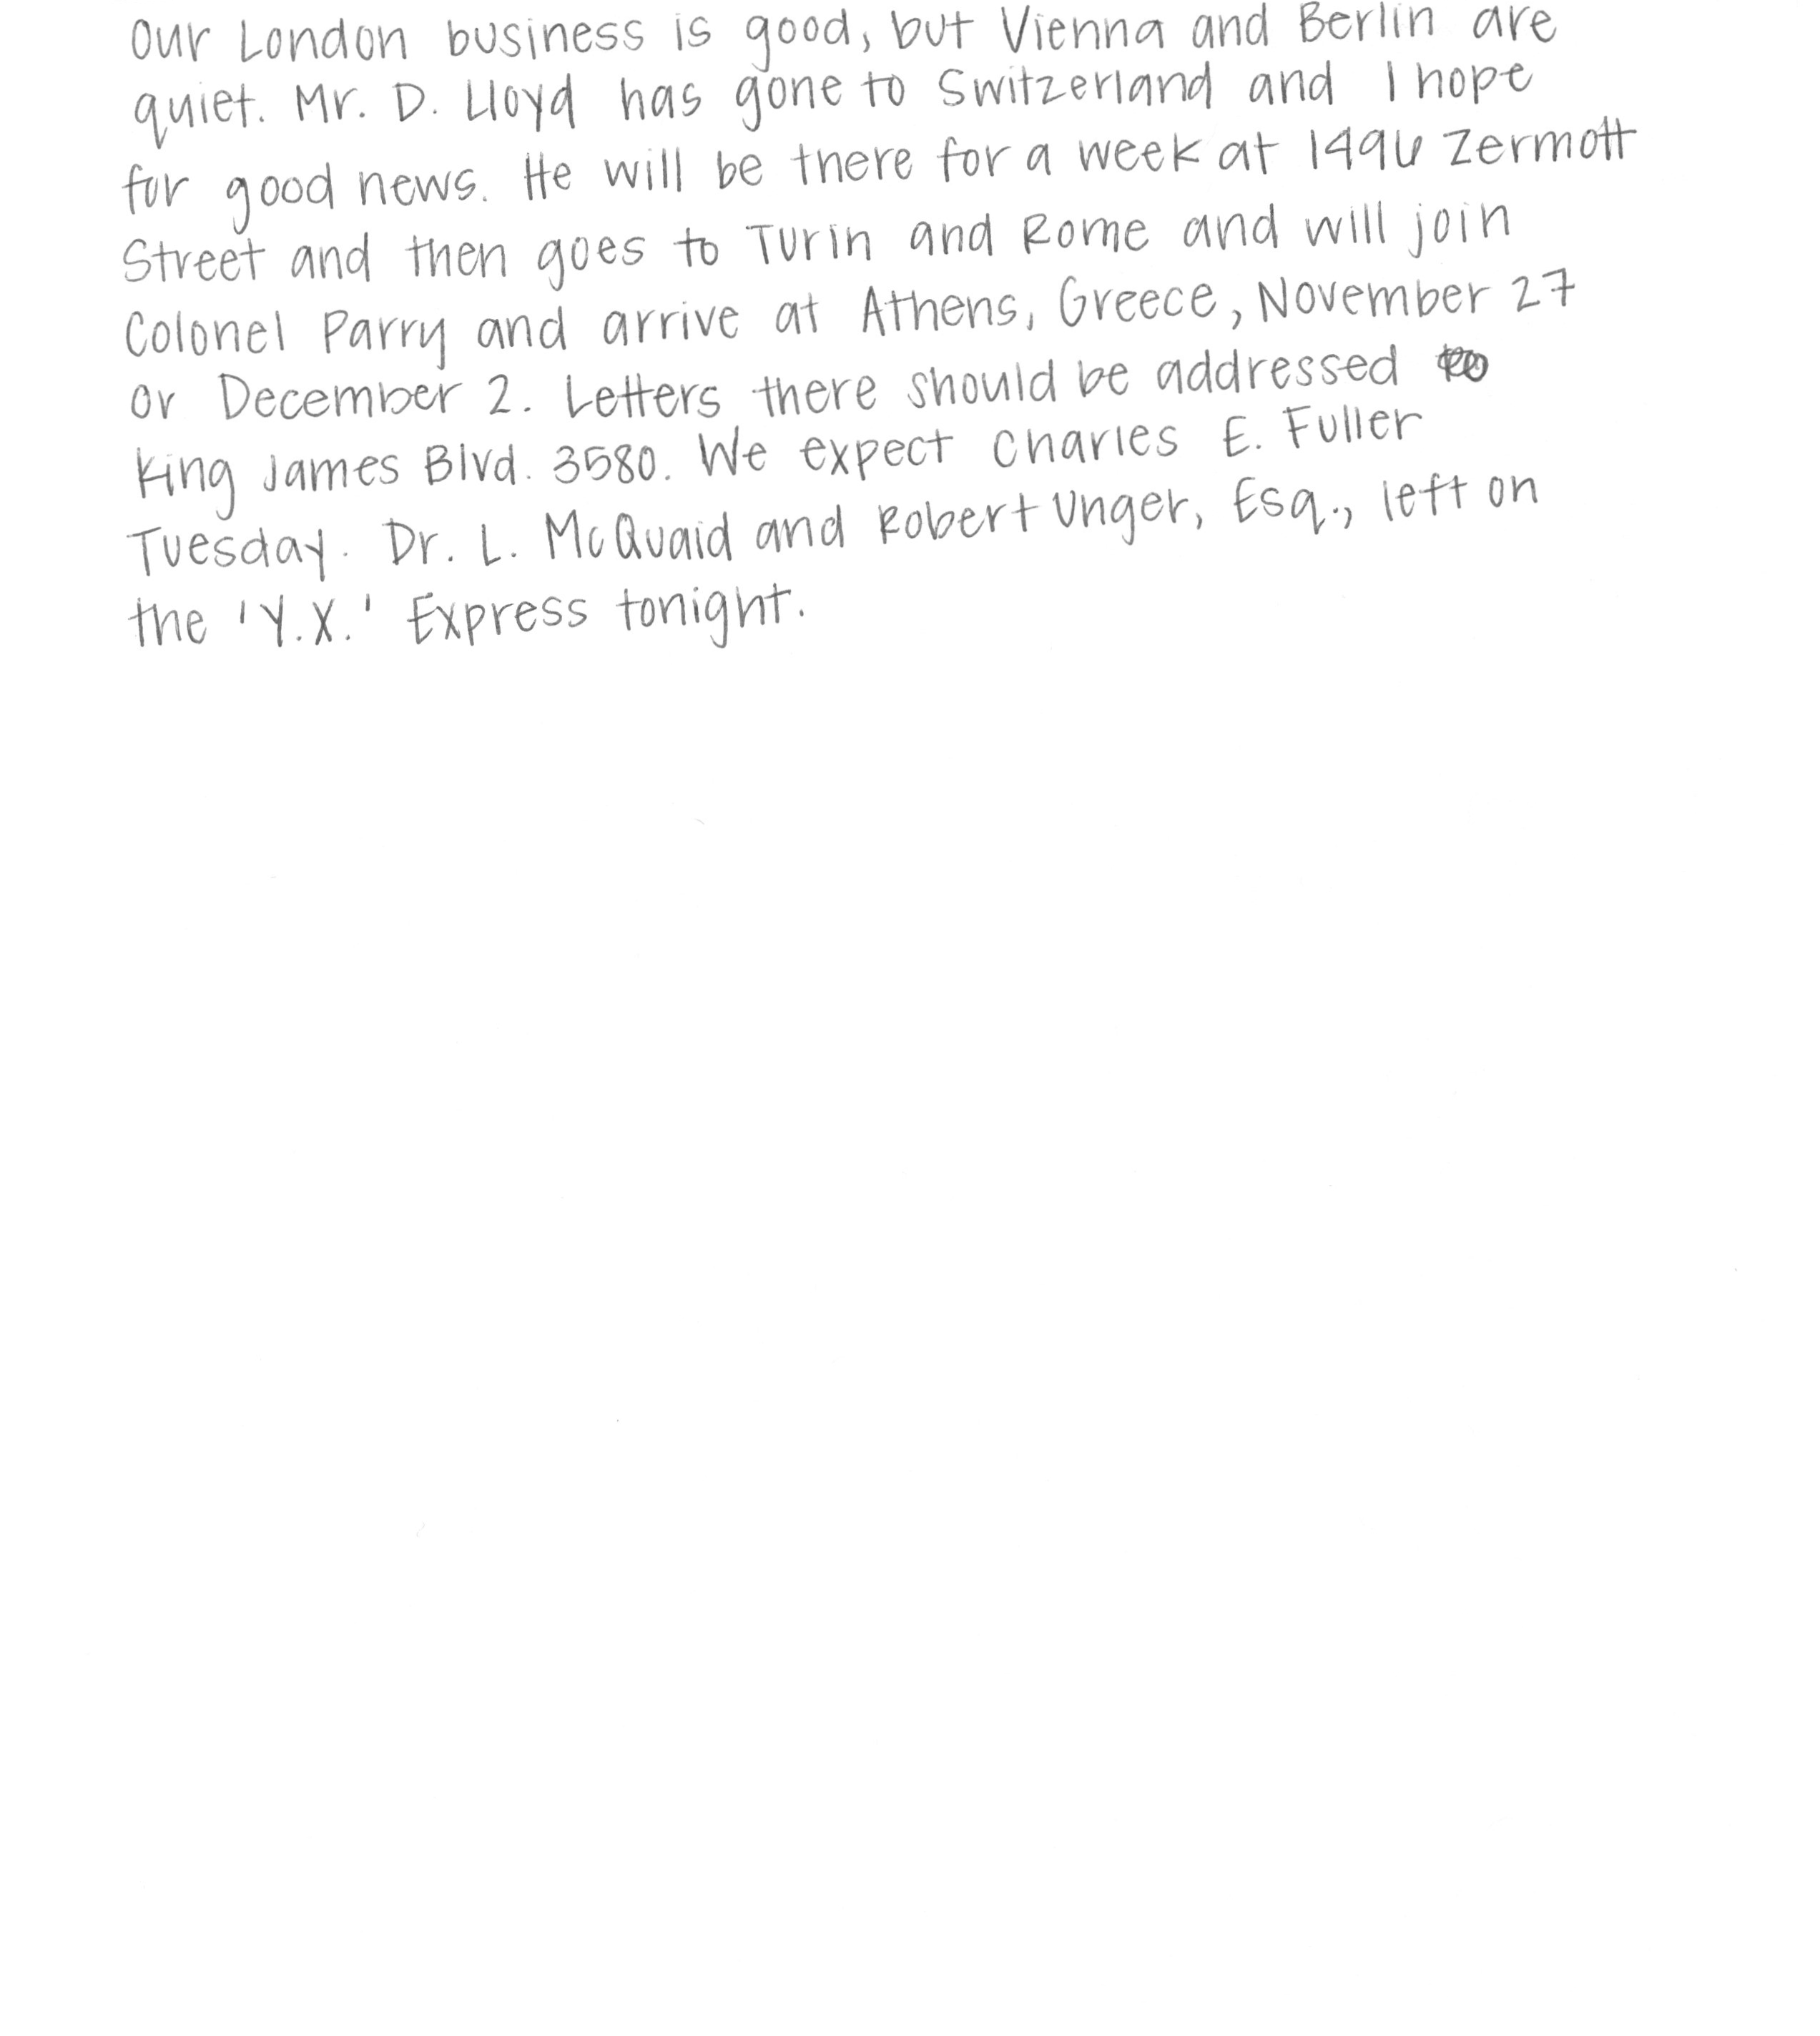 Our London business is good, but Vienna and Berlin are
quiet. Mr. D. Lloyd has gone to Switzerland and I hope
for good news. He will be there for a week at 1496 Zermott
Street and then goes to Turin and Rome and will join
Colonel Parry and arrive at Athens, Greece, November 27
or December 2. Letters there should be addressed
King James Blvd. 3580. We expect Charles E. Fuller
Tuesday. Dr. L. McQuaid and Robert Unger, Esq., left on
the 'Y.X.' Express tonight.